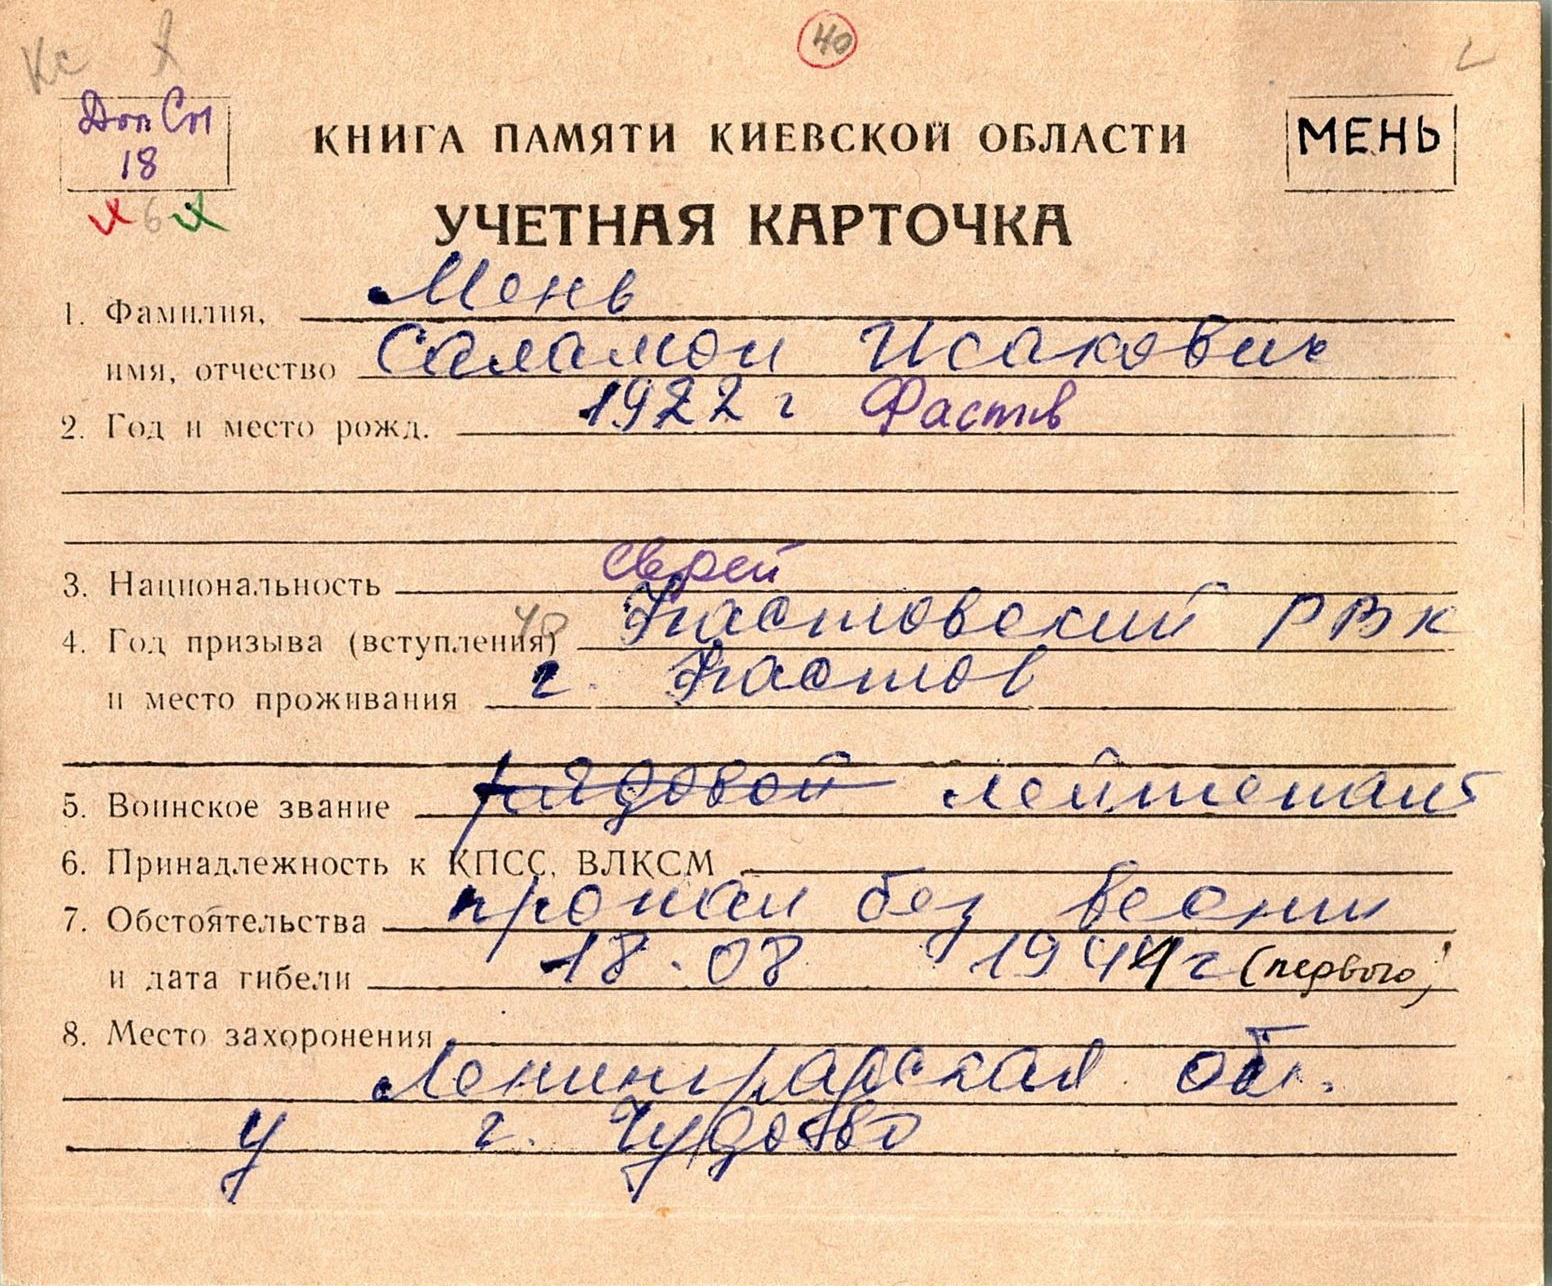 Кс
40
Доп Сп
18
6
КНИГА ПАМЯТИ КИЕВСКОЙ ОБЛАСТИ
МЕНЬ
УЧЕТНАЯ КАРТОЧКА
1. Фамилия, Мень
имя, отчество Саламон Исакович
2. Год и место рожд. 1922 г Фастів
3. Национальность еврей
4. Год призыва (вступления) Фастовский РВК
и место проживания г. Фастов
5. Воинское звание рядовой лейтенант
6. Принадлежность к КПСС, ВЛКСМ
7. Обстоятельства пропал без вести
и дата гибели 18.08 1944 г (первого)
8. Место захоронения
Ленинградская обл.
у г. Чудово